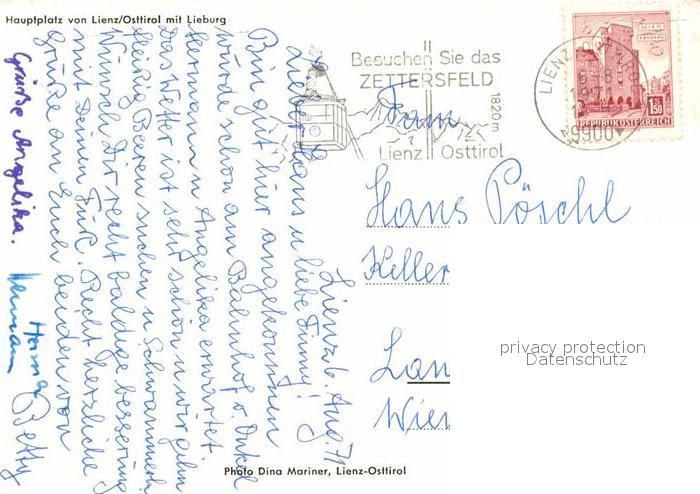 Hauptplatz von Lienz/Osttirol mit Lieburg
Besuchen Sie das
ZETTERSFELD
1820m
Lienz Osttirol
LIENZ, OSTTIROL
6.-8.
1971
9900
WIEN
1.50
REPUBLIK ÖSTERREICH
Fam
Hans Pöschl
Keller
Lan
Wien
privacy protection
Datenschutz
Lienz 6. Aug. 71
Lieber Hans u liebe
Bin gut hier angekommen
wurde schon am Bahnhof v Onkel
Hermann u Angelika erwartet.
Das Wetter ist sehr schön u wir gehn
fleißig Beeren suchen u Schwammerln
Wünsch Dir recht baldige besserung
mit Deinen Fuß. Recht herzliche
Grüße an Euch beiden von
Betty
Grüße Angelika.
Herma
Hermann
Photo Dina Mariner, Lienz-Osttirol